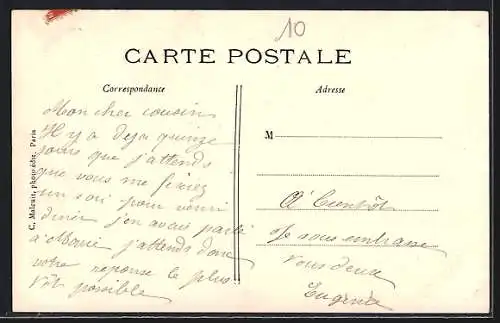 10
CARTE POSTALE
Correspondance
Adresse
Mon cher cousin
Il y a deja quinze
jours que j'attends
que vous me fixiez
un soir pour venir
diner j'en avais parlé
à Marie j'attends donc
votre reponse le plus
tôt possible
M
A Bientôt
Je vous embrasse
vous deux
Eugénie
C. Malcuit, phot-édit. Paris